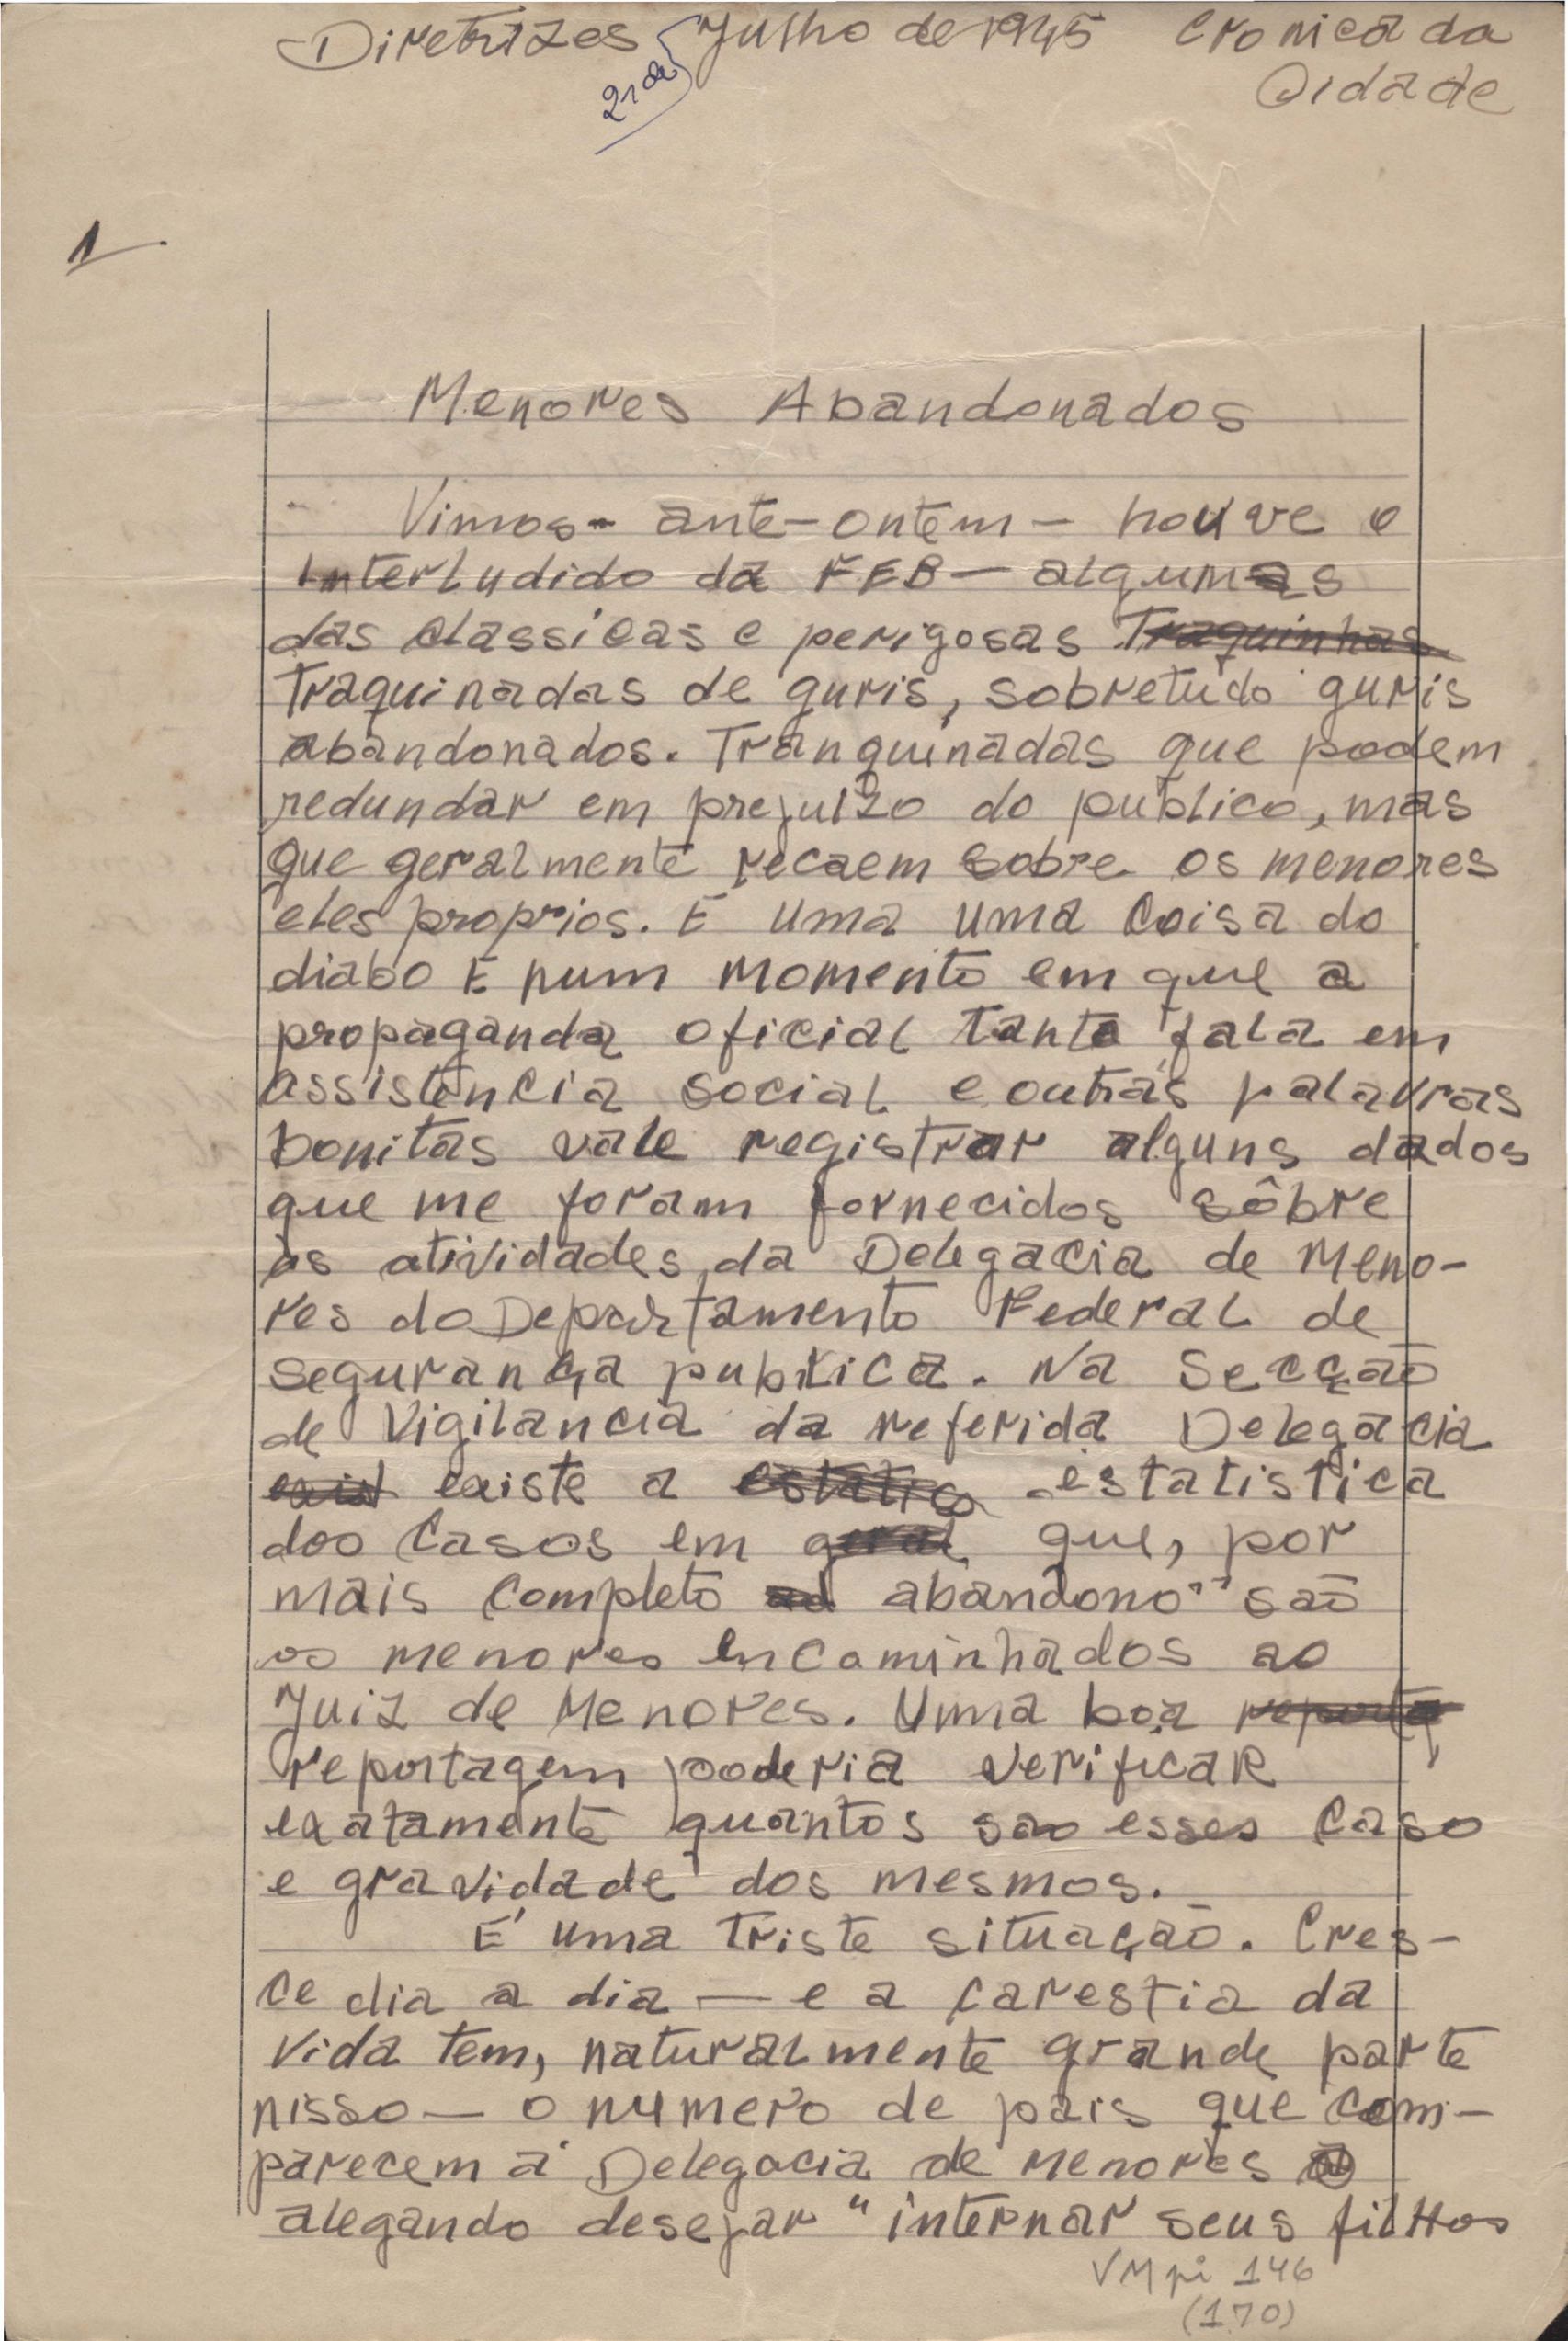 Diretrizes 21 de Julho de 1945 Cronica da
Cidade
1
Menores Abandonados
Vimos - ante-ontem - houve o
Interludido da FEB — algumas
das classicas e perigosas Traquinhas
Traquinadas de guris, sobretudo guris
abandonados. Tranquinadas que podem
redundar em prejuizo do publico, mas
que geralmente recaem sobre os menores
eles proprios. E uma uma coisa do
diabo E num momento em que a
propaganda oficial tanto fala em
assistencia social e outras palavras
bonitas vale registrar alguns dados
que me foram fornecidos sôbre
as atividades da Delegacia de Meno-
res do Departamento Federal de
Segurança publica. Na Secção
de Vigilancia da referida Delegacia
exist existe a estatico estatistica
dos casos em geral que, por
mais completo ad abandono" são
os menores encaminhados ao
Juiz de Menores. Uma boa reporta
reportagem poderia verificar
exatamente quantos são esses caso
e gravidade dos mesmos.
É uma triste situação. Cres-
ce dia a dia — e a carestia da
vida tem, naturalmente grande parte
nisso — o numero de pais que com-
parecem á Delegacia de Menores
alegando desejar "internar seus filhos
VMpi 146
(170)